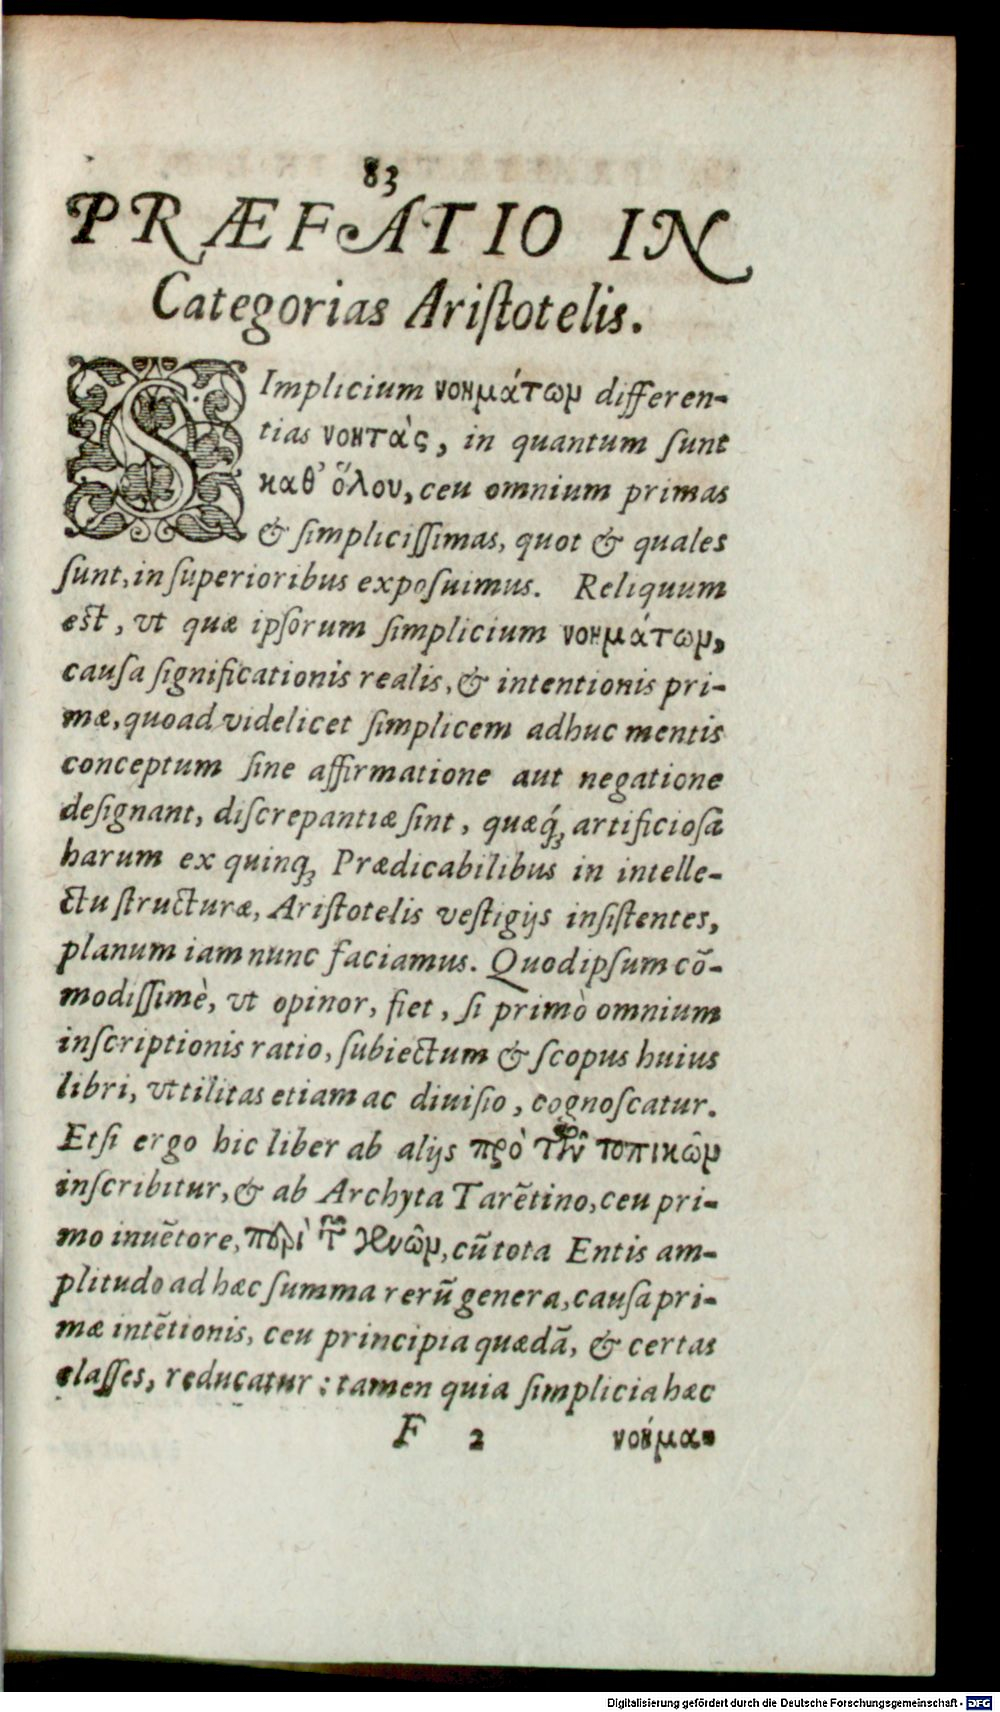 83
PRÆFATIO IN
Categorias Ariſtotelis.
SImplicium νοημάτωμ differen-
tias νοητὰς, in quantum ſunt
καθ' ὅλου, ceu omnium primas
& ſimpliciſſimas, quot & quales
ſunt, in ſuperioribus expoſuimus. Reliquum
eſt, vt quæ ipſorum ſimplicium νοημάτωμ,
cauſa ſignificationis realis, & intentionis pri-
mæ, quoad videlicet ſimplicem adhuc mentis
conceptum ſine affirmatione aut negatione
deſignant, diſcrepantiæ ſint, quæq́ꝫ artificioſa
harum ex quinqꝫ Prædicabilibus in intelle-
ctu ſtructuræ, Ariſtotelis veſtigijs inſiſtentes,
planum iam nunc faciamus. Quod ipſum cõ-
modiſſimè, vt opinor, fiet, ſi primò omnium
inſcriptionis ratio, ſubiectum & ſcopus huius
libri, vtilitas etiam ac diuiſio, cognoſcatur.
Etſi ergo hic liber ab alijs πρὸ τῶν τοπικῶμ
inſcribitur, & ab Archyta Tarẽtino, ceu pri-
mo inuẽtore, περὶ τ͂ γενῶμ, cũ tota Entis am-
plitudo ad hæc ſumma rerũ genera, cauſa pri-
mæ intẽtionis, ceu principia quædã, & certas
claſſes, reducatur: tamen quia ſimplicia hæc
F 2 νοήμα-
Digitalisierung gefördert durch die Deutsche Forschungsgemeinschaft - DFG